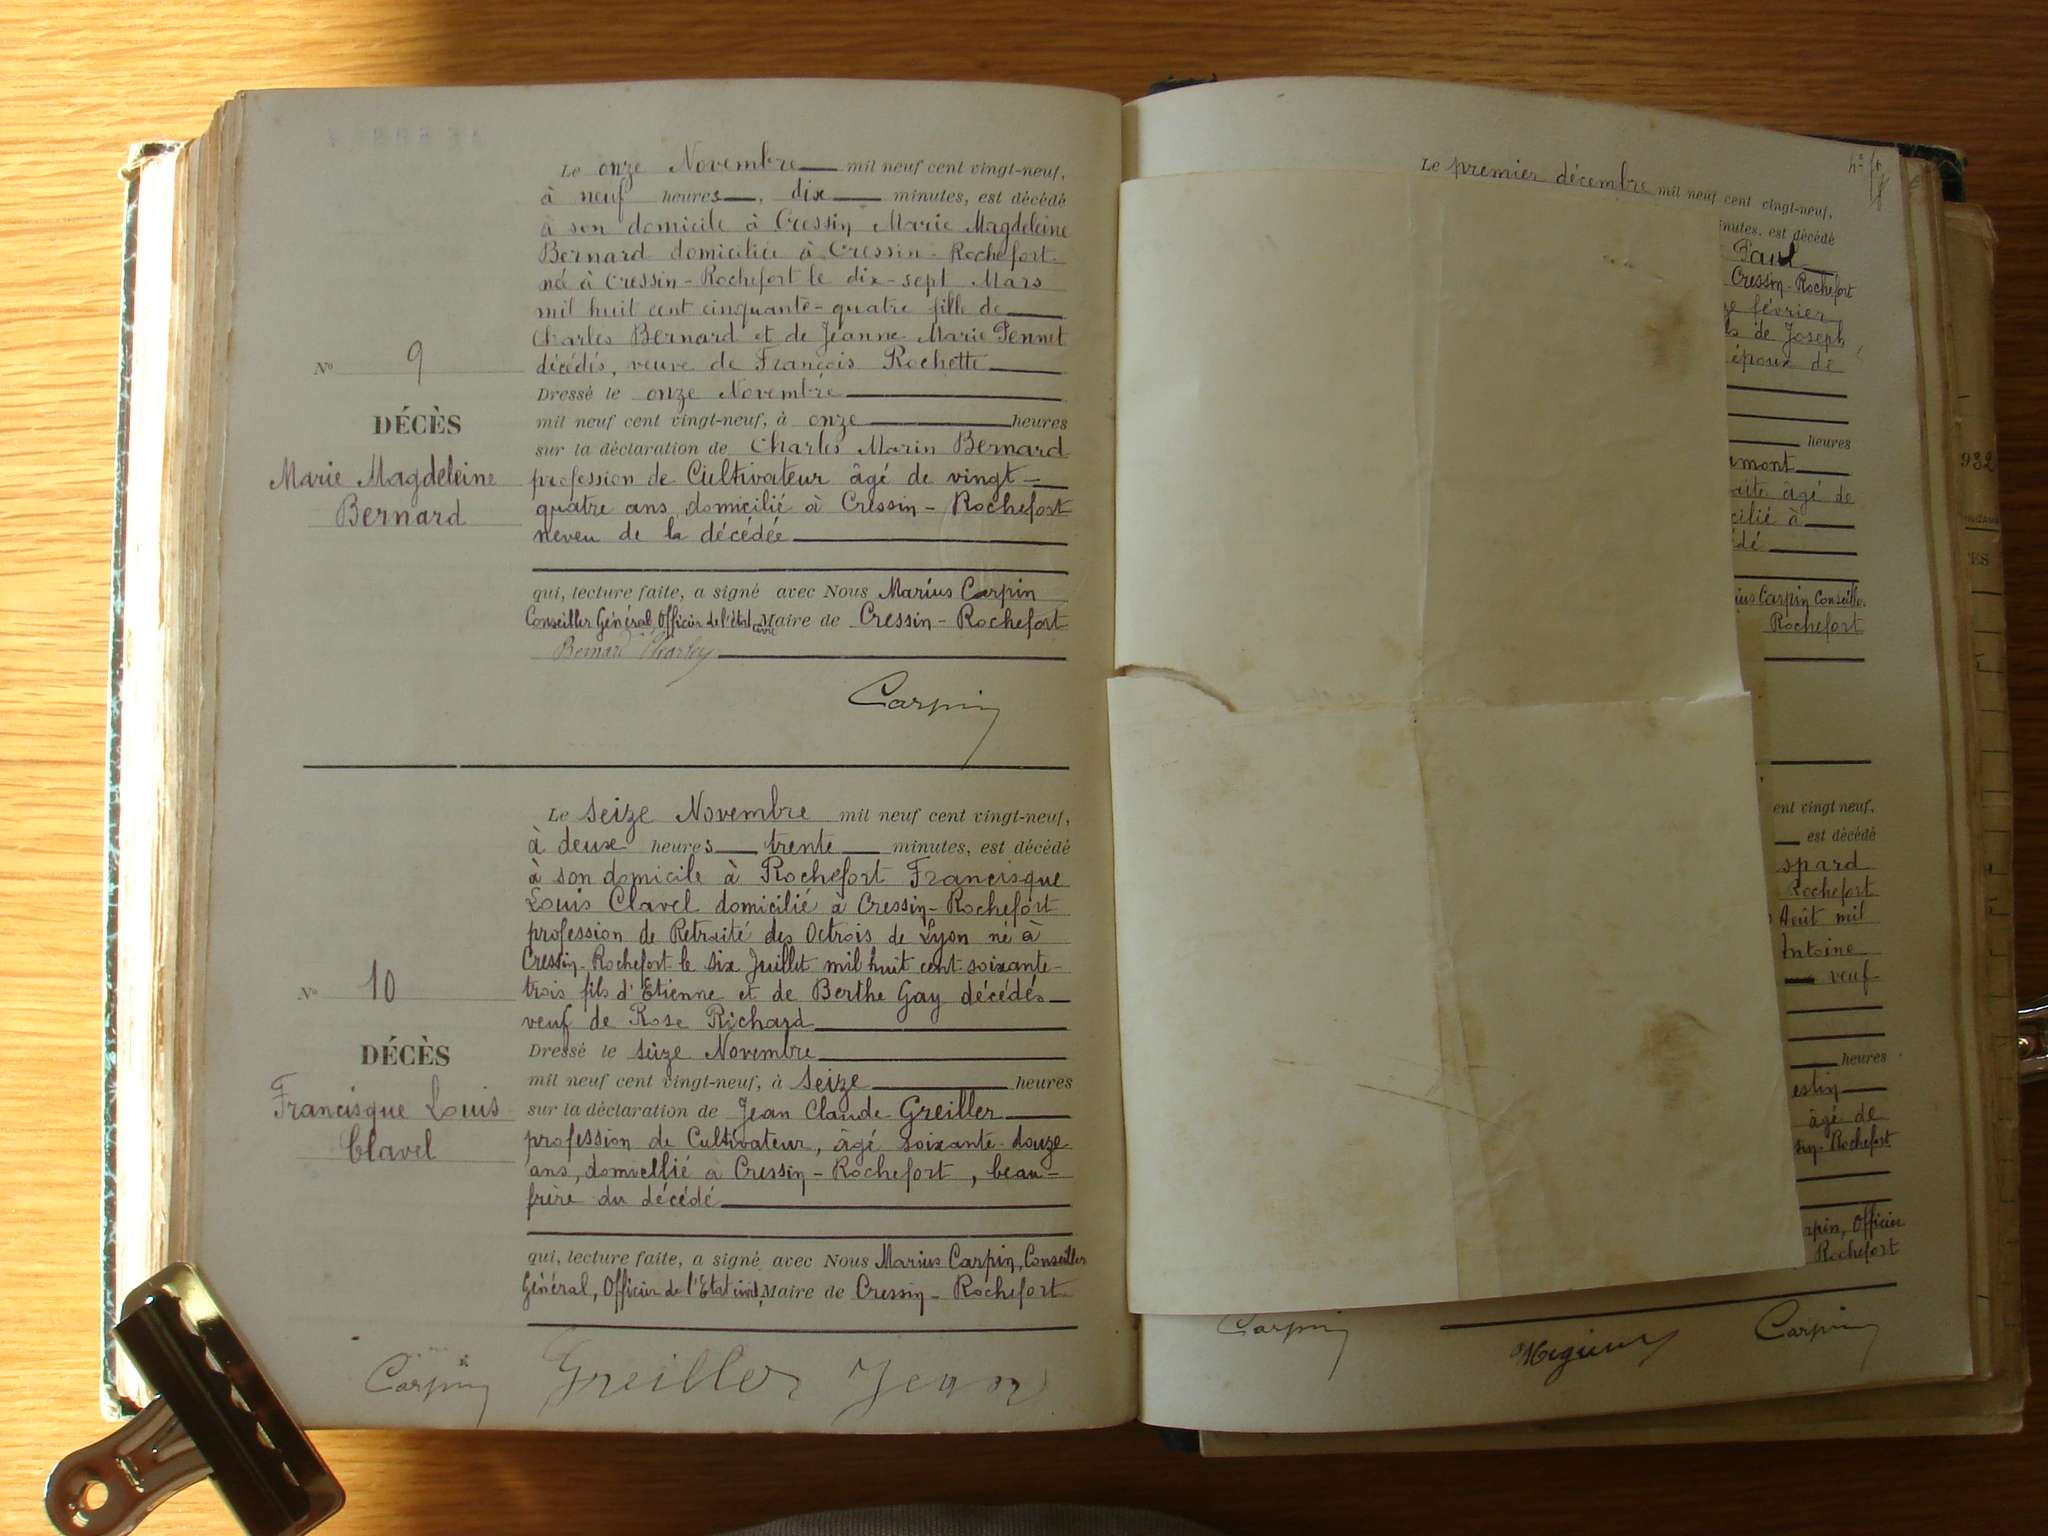 Le onze Novembre mil neuf cent vingt-neuf,
à neuf heures, dix minutes, est décédé
à son domicile à Cressin Marie Magdeleine
Bernard domiciliée à Cressin-Rochefort
née à Cressin-Rochefort le dix-sept Mars
mil huit cent cinquante-quatre fille de
Charles Bernard et de Jeanne Marie Pennet
décédés, veuve de François Rochette
Nº 9
DÉCÈS
Marie Magdeleine
Bernard
Dressé le onze Novembre
mil neuf cent vingt-neuf, à onze heures
sur la déclaration de Charles Marin Bernard
profession de Cultivateur âgé de vingt-
quatre ans, domicilié à Cressin-Rochefort
neveu de la décédée
qui, lecture faite, a signé avec Nous Marius Carpin
Conseiller Général, Officier de l'état civil Maire de Cressin-Rochefort
Bernard Charles
Carpin
Le seize Novembre mil neuf cent vingt-neuf,
à deux heures trente minutes, est décédé
à son domicile à Rochefort Francisque
Louis Clavel domicilié à Cressin-Rochefort
profession de Retraité des Octrois de Lyon né à
Cressin-Rochefort le six Juillet mil huit cent soixante-
trois fils d'Etienne et de Berthe Gay décédés
veuf de Rose Richard
Nº 10
DÉCÈS
Francisque Louis
Clavel
Dressé le seize Novembre
mil neuf cent vingt-neuf, à seize heures
sur la déclaration de Jean Claude Greiller
profession de Cultivateur, âgé soixante-douze
ans, domicilié à Cressin-Rochefort, beau-
frère du décédé
qui, lecture faite, a signé avec Nous Marius Carpin, Conseiller
Général, Officier de l'Etat civil, Maire de Cressin-Rochefort
Carpin Greiller Jean
Le premier décembre mil neuf cent vingt-neuf,
minutes, est décédé
Paul
Cressin-Rochefort
février
de Joseph
époux de
heures
âgé de
à
Carpin Conseiller
Rochefort
932
ent vingt-neuf,
est décédé
spard
Rochefort
Août mil
Antoine
veuf
heures
estin
âgé de
sin-Rochefort
rpin, Officier
Rochefort
Carpin Carpin